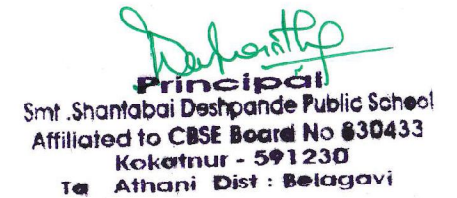 Principal
Smt .Shantabai Deshpande Public School
Affiliated to CBSE Board No 830433
Kokatnur - 591230
Tq Athani Dist : Belagavi